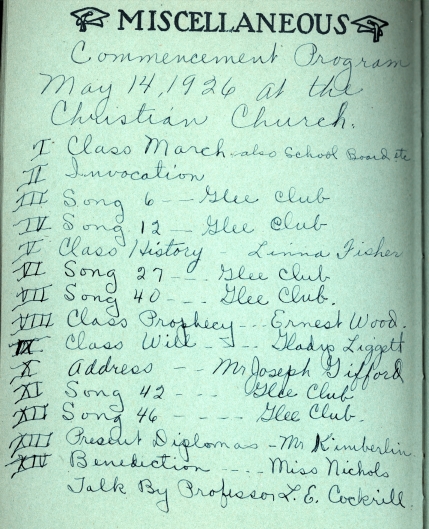 MISCELLANEOUS
Commencement Program
May 14, 1926 at the
Christian Church.
I Class March also School Board etc
II Invocation
III Song 6 -- Glee Club
IV Song 12 -- Glee Club
V Class History - Linna Fisher
VI Song 27 --- Glee Club
VII Song 40 --- Glee Club.
VIII Class Prophecy --- Ernest Wood.
IX Class Will --- Gladys Liggett
X Address -- Mr Joseph Gifford
XI Song 42 --- Glee Club
XII Song 46 ---- Glee Club.
XIII Present Diplomas - Mr Kimberlin
XIV Benediction ---- Miss Nichols
Talk By Professor L. E. Cockrill.